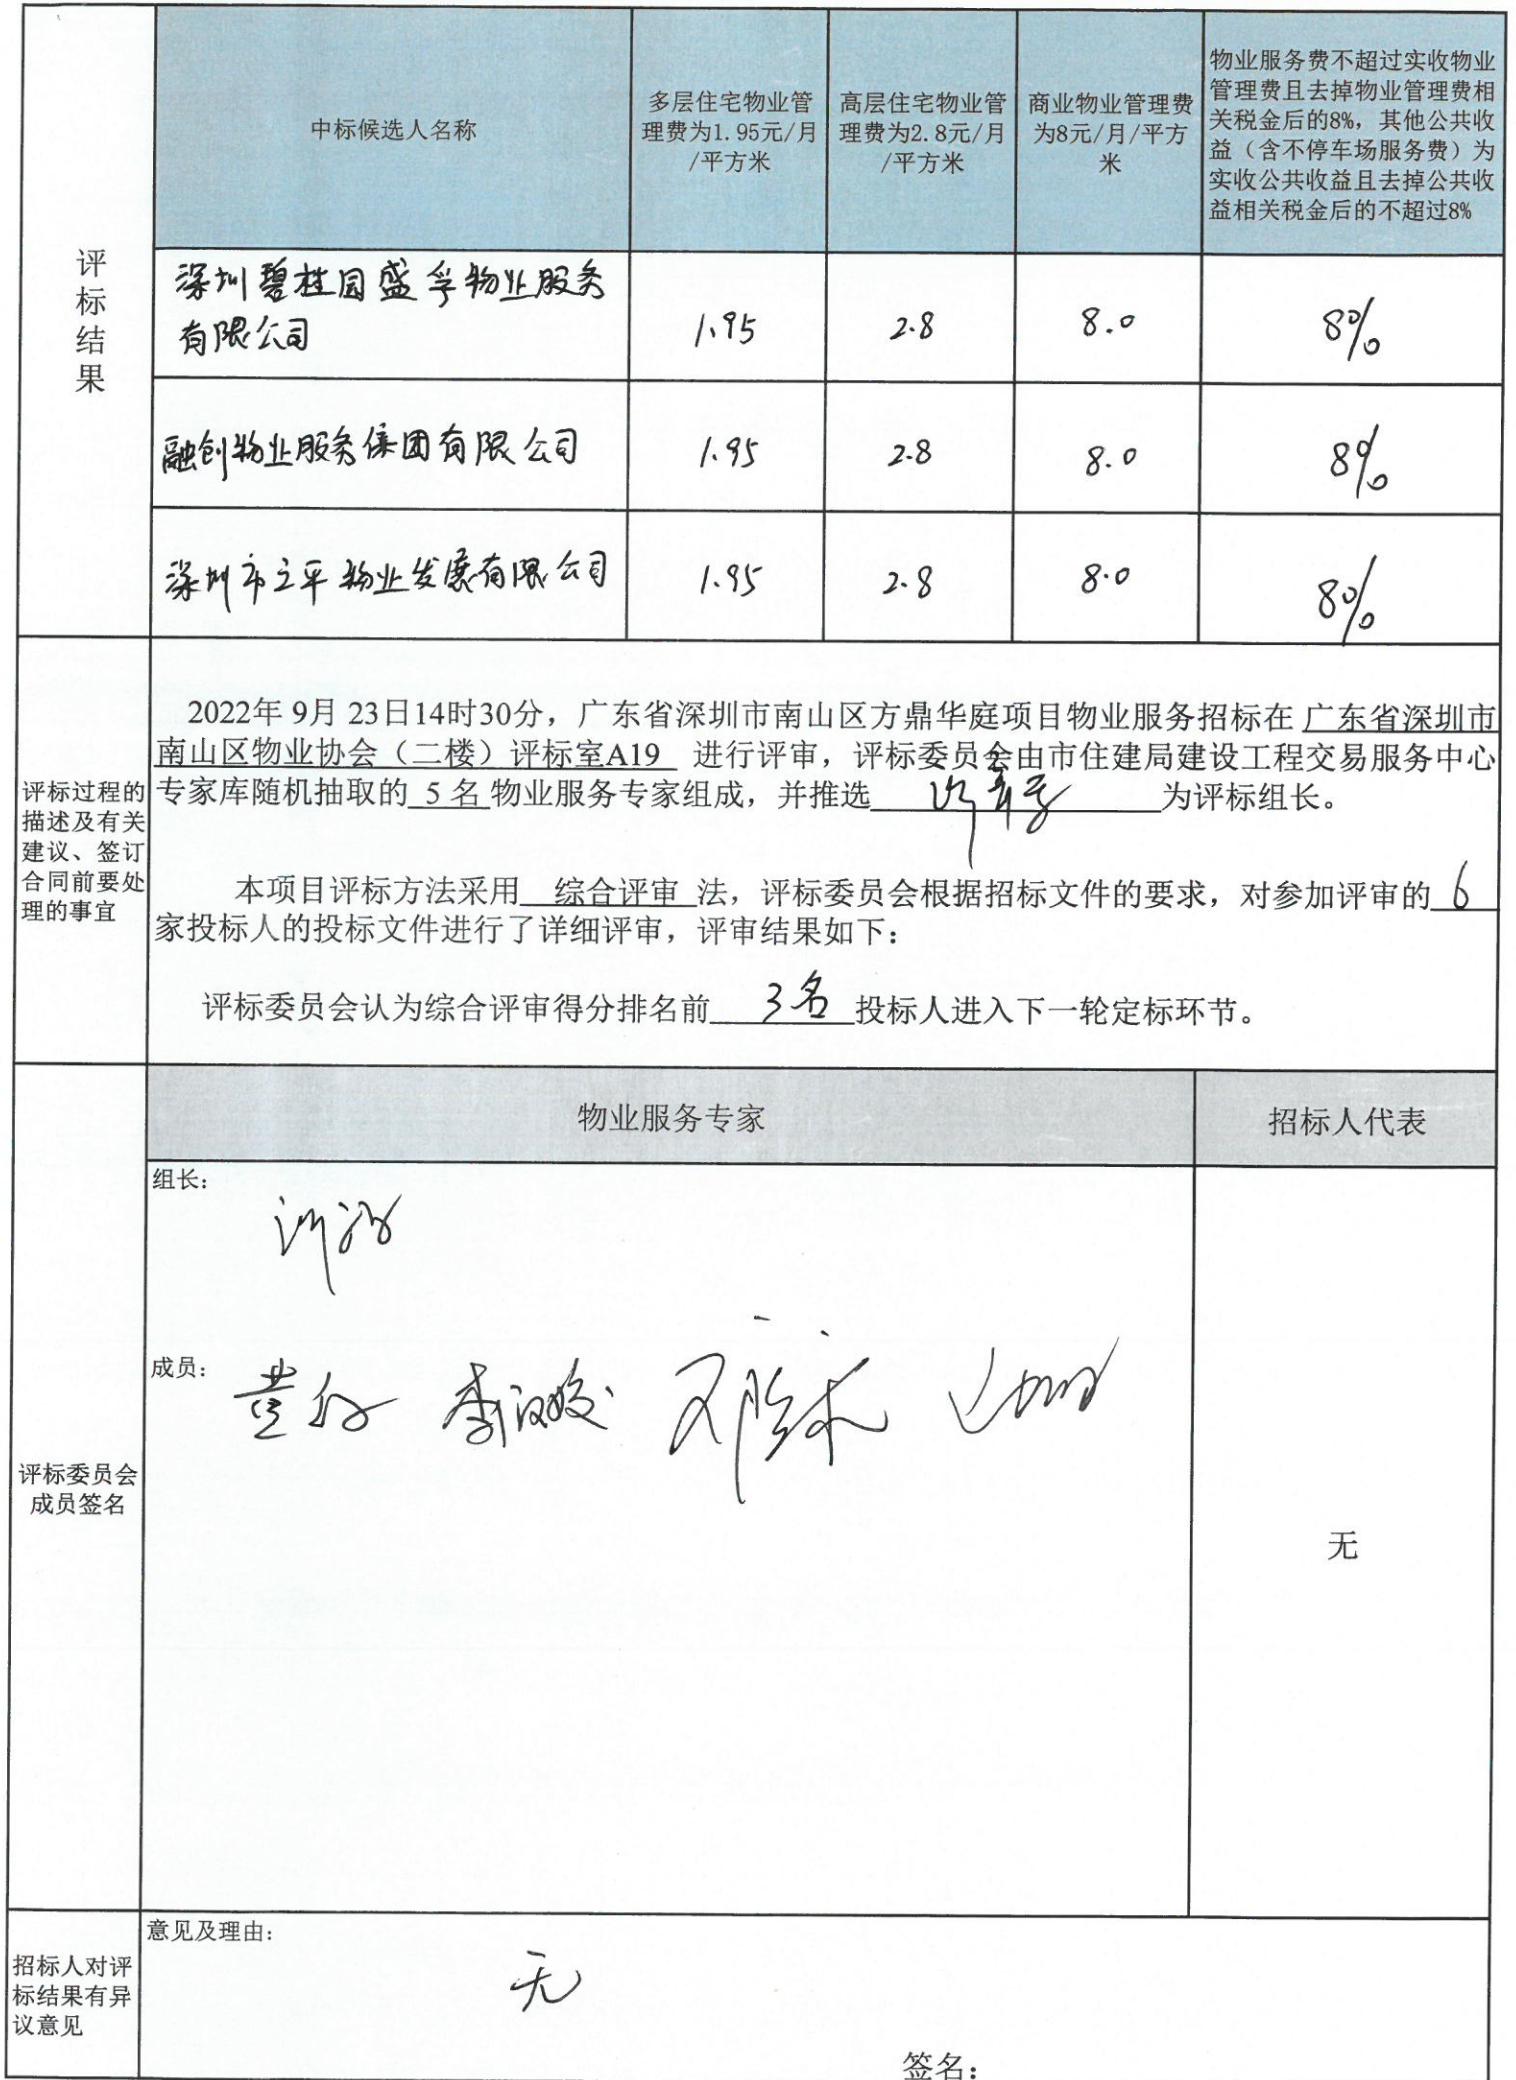 评
标
结
果
中标候选人名称
多层住宅物业管
理费为1.95元/月
/平方米
高层住宅物业管
理费为2.8元/月
/平方米
商业物业管理费
为8元/月/平方
米
物业服务费不超过实收物业
管理费且去掉物业管理费相
关税金后的8%，其他公共收
益（含不停车场服务费）为
实收公共收益且去掉公共收
益相关税金后的不超过8%
深圳碧桂园盛孚物业服务
有限公司
1.95
2.8
8.0
8%
融创物业服务集团有限公司
1.95
2.8
8.0
8%
深圳市之平物业发展有限公司
1.95
2.8
8.0
8%
评标过程的
描述及有关
建议、签订
合同前要处
理的事宜
2022年 9月 23日14时30分，广东省深圳市南山区方鼎华庭项目物业服务招标在 广东省深圳市
南山区物业协会（二楼）评标室A19 进行评审，评标委员会由市住建局建设工程交易服务中心
专家库随机抽取的 5 名 物业服务专家组成，并推选 为评标组长。
本项目评标方法采用 综合评审 法，评标委员会根据招标文件的要求，对参加评审的 6
家投标人的投标文件进行了详细评审，评审结果如下：
评标委员会认为综合评审得分排名前 3名 投标人进入下一轮定标环节。
评标委员会
成员签名
物业服务专家
招标人代表
组长：
成员：
无
招标人对评
标结果有异
议意见
意见及理由：
无
签名：